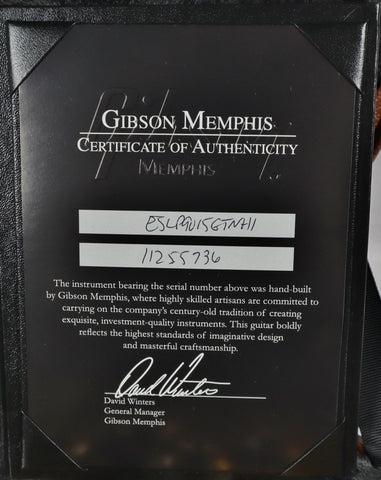 Gibson
GIBSON MEMPHIS
CERTIFICATE OF AUTHENTICITY
MEMPHIS
ESLP9015GTNH1
11255736
The instrument bearing the serial number above was hand-built
by Gibson Memphis, where highly skilled artisans are committed to
carrying on the company's century-old tradition of creating
exquisite, investment-quality instruments. This guitar boldly
reflects the highest standards of imaginative design
and masterful craftsmanship.
David Winters
David Winters
General Manager
Gibson Memphis